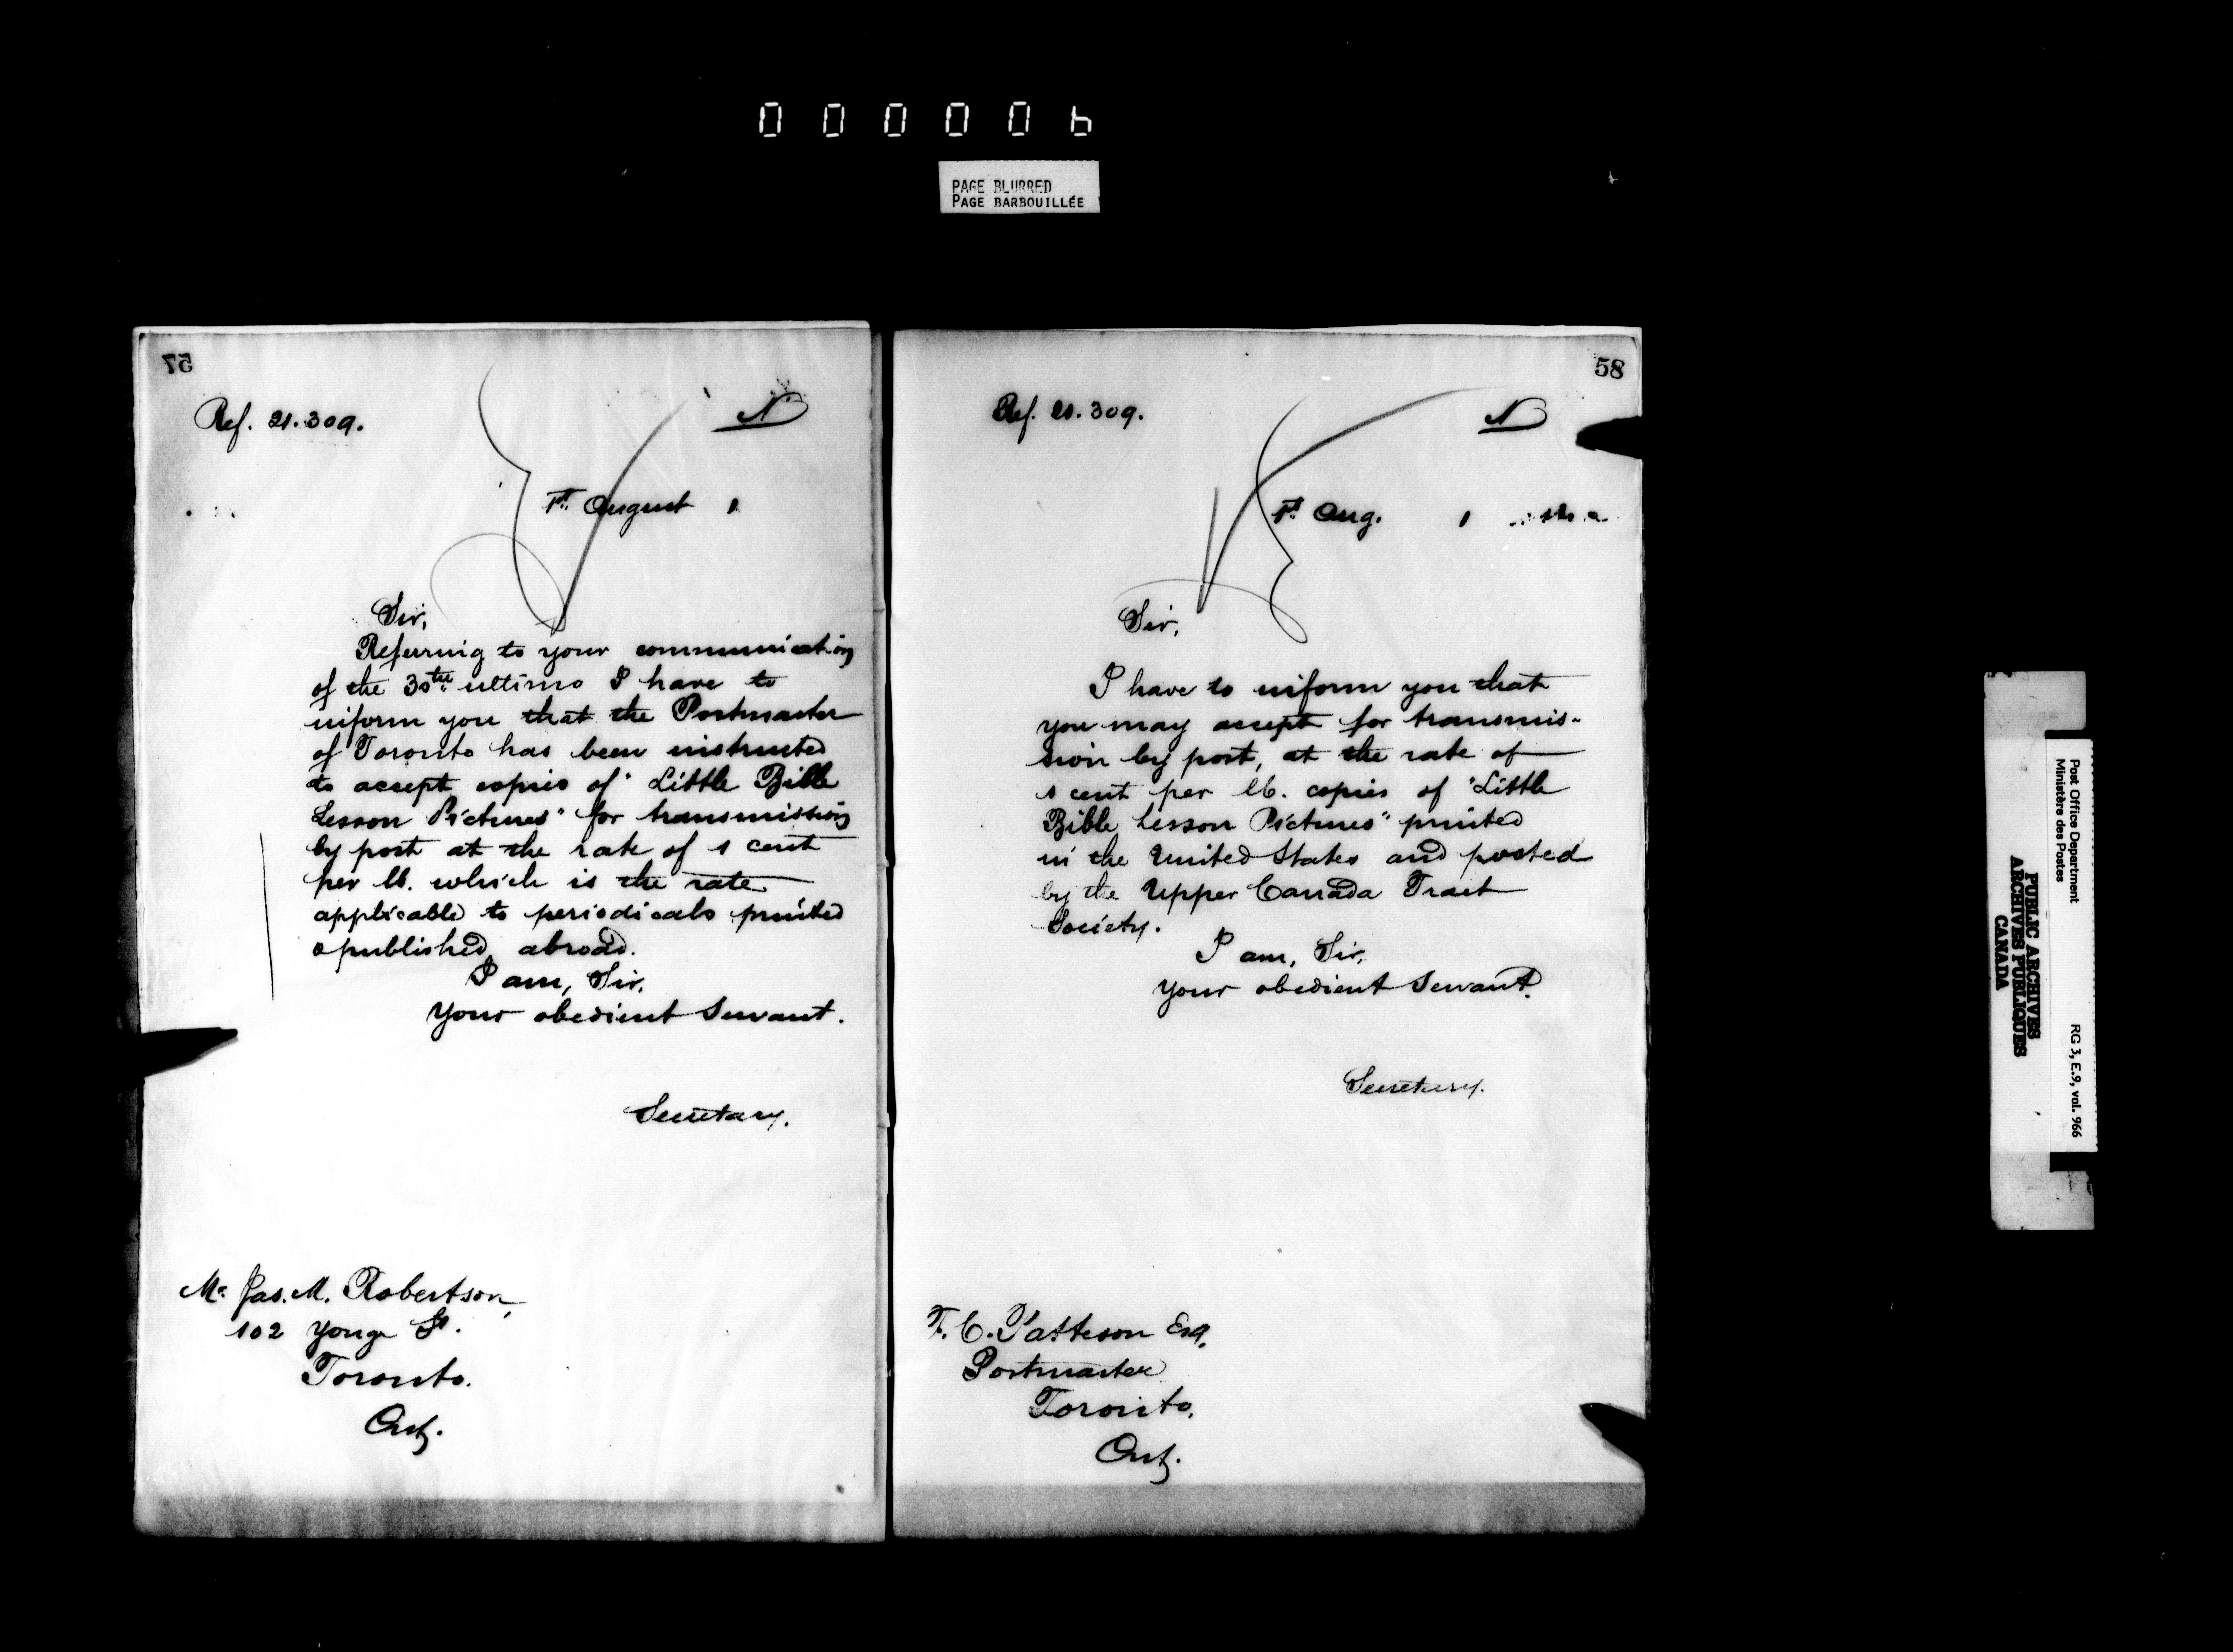 000006
PAGE BLURRED
PAGE BARBOUILLÉE
57
Ref. 21.309.
N
1st. August 1
Sir,
Referring to your communication
of the 30th ultimo I have to
inform you that the Postmaster
of Toronto has been instructed
to accept copies of "Little Bible
Lesson Pictures" for transmission
by post at the rate of 1 cent
per lb. which is the rate
applicable to periodicals printed
& published abroad.
I am, Sir,
Your obedient Servant.
Secretary.
Mr Jas. M. Robertson,
102 Yonge St.
Toronto.
Ont.
58
Ref. 21.309.
N
1st Aug. 1
Sir,
I have to inform you that
you may accept for transmis-
sion by post, at the rate of
1 cent per lb. copies of "Little
Bible Lesson Pictures" printed
in the United States and posted
by the Upper Canada Tract
Society.
I am, Sir,
Your obedient Servant.
Secretary.
T. C. Patteson Esq.
Postmaster
Toronto,
Ont.
Post Office Department
Ministère des Postes
RG 3, E.9, vol. 966
PUBLIC ARCHIVES
ARCHIVES PUBLIQUES
CANADA